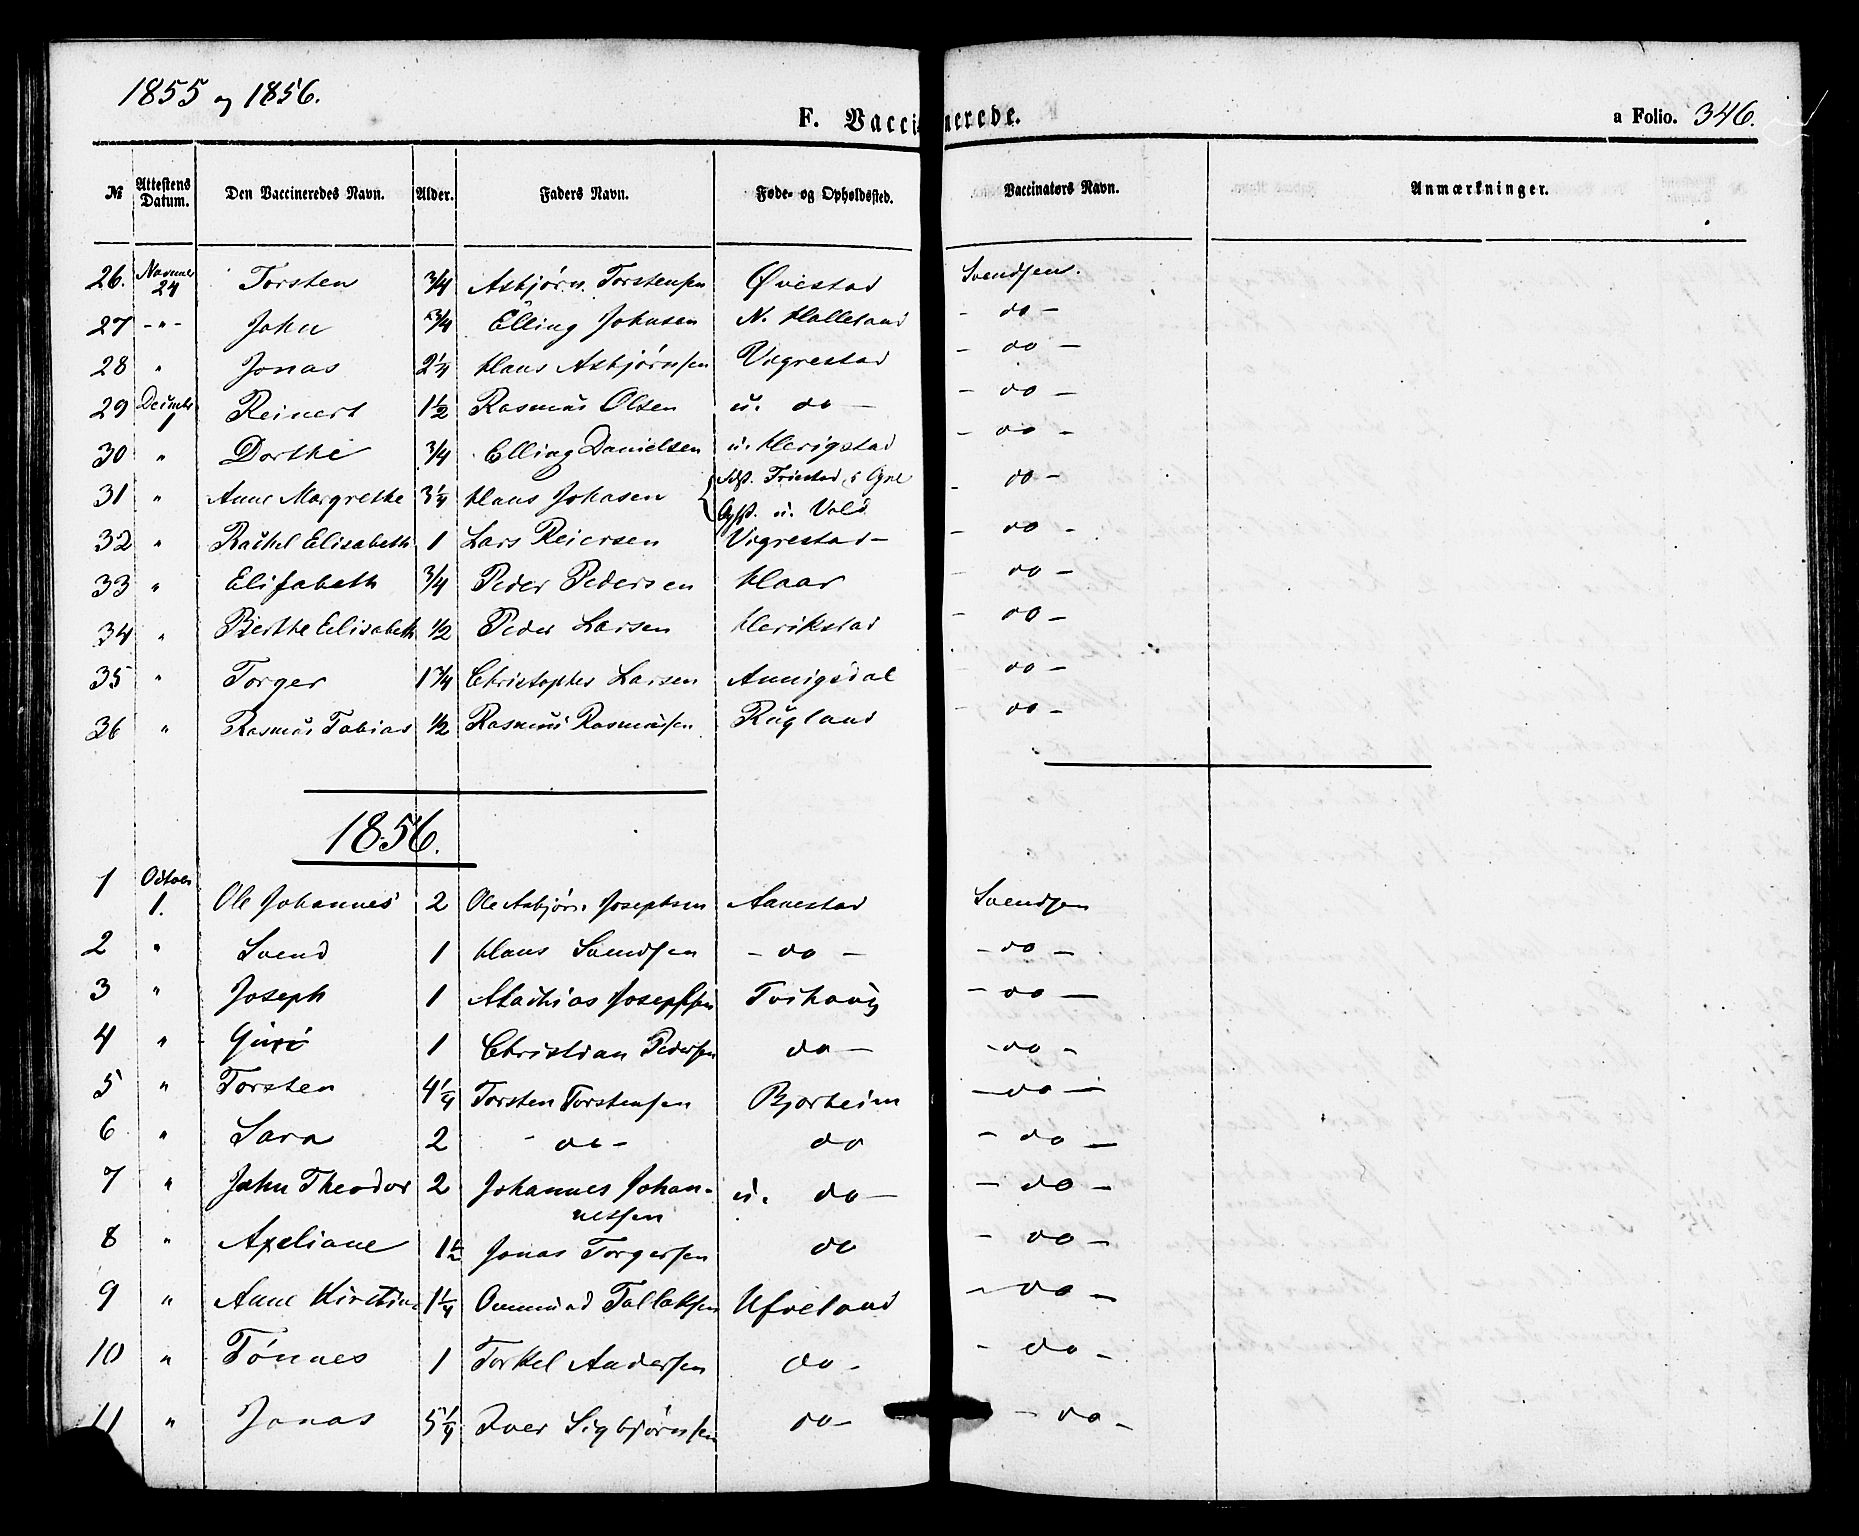 1855 og 1856.
F. Vaccinerede.
a Folio. 346.
№ Attestens Datum. Den Vaccineredes Navn. Alder. Faders Navn. Føde- og Opholdssted. Vaccinators Navn. Anmærkninger.
26. 24 Torsten 3/4 Asbjørn Torstensen Øvestad Svendsen.
27 -"- John 3/4 Elling Johnsen N. Halleland - do -
28 " Jonas 2 1/4 Hans Asbjørnsen Vigrestad - do -
29 7 Reinert 1 1/2 Rasmus Olsen u. do - - do -
30 " Dorthe 3/4 Elling Danielsen u. Herigstad - do -
31 " Anne Margrethe 3 1/4 Hans Johnsen - do -
u. Vold
32 " Rachel Elisabeth 1 Lars Reiersen Vigrestad - - do -
33 " Elisabeth 3/4 Peder Pedersen Haar - do -
34 " Berthe Elisabeth 1/2 Peder Larsen Herikstad - do -
35 " Torger 1 3/4 Christopher Larsen Aunigsdal - do -
36 " Rasmus Tobias 1/2 Rasmus Rasmussen Rugland - do -
1856.
1 1. Ole Johannes 2 Ole Asbjørn Josephsen Aanestad Svendsen
2 " Svend 1 Hans Svendsen - do - - do -
3 " Joseph 1 Mathias Josephsen Tvihoug - do -
4 " Guri 1 Christian Pedersen do - - do -
5 " Torsten 4 1/4 Torsten Torstensen Bjorheim - do -
6 " Sara 2 - do - do - do -
7 " John Theodor 2 Johannes Johan- u. do - - do -
nessen
8 " Axeliane 1 1/2 Jonas Torgersen do - do -
9 " Anne Kirstine 1 1/4 Ommund Tallaksen Ufveland - do -
10 " Tønnes 1 Torkel Andersen do - - do -
11 " Jonas 5 1/4 Iver Sigbjørnsen do - - do -